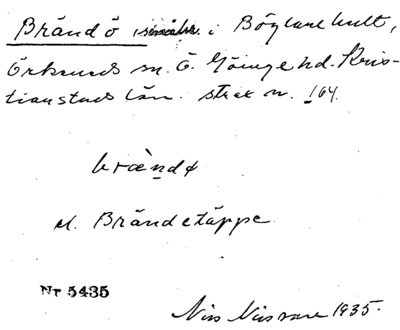 Brändö i Böglarehult,
Örkeneds sn. Ö. Göinge hd. Kris-
tianstads län. strax n. 164.
bræ̀ndø
el. Brändetäppe
Nr 5435
1935.